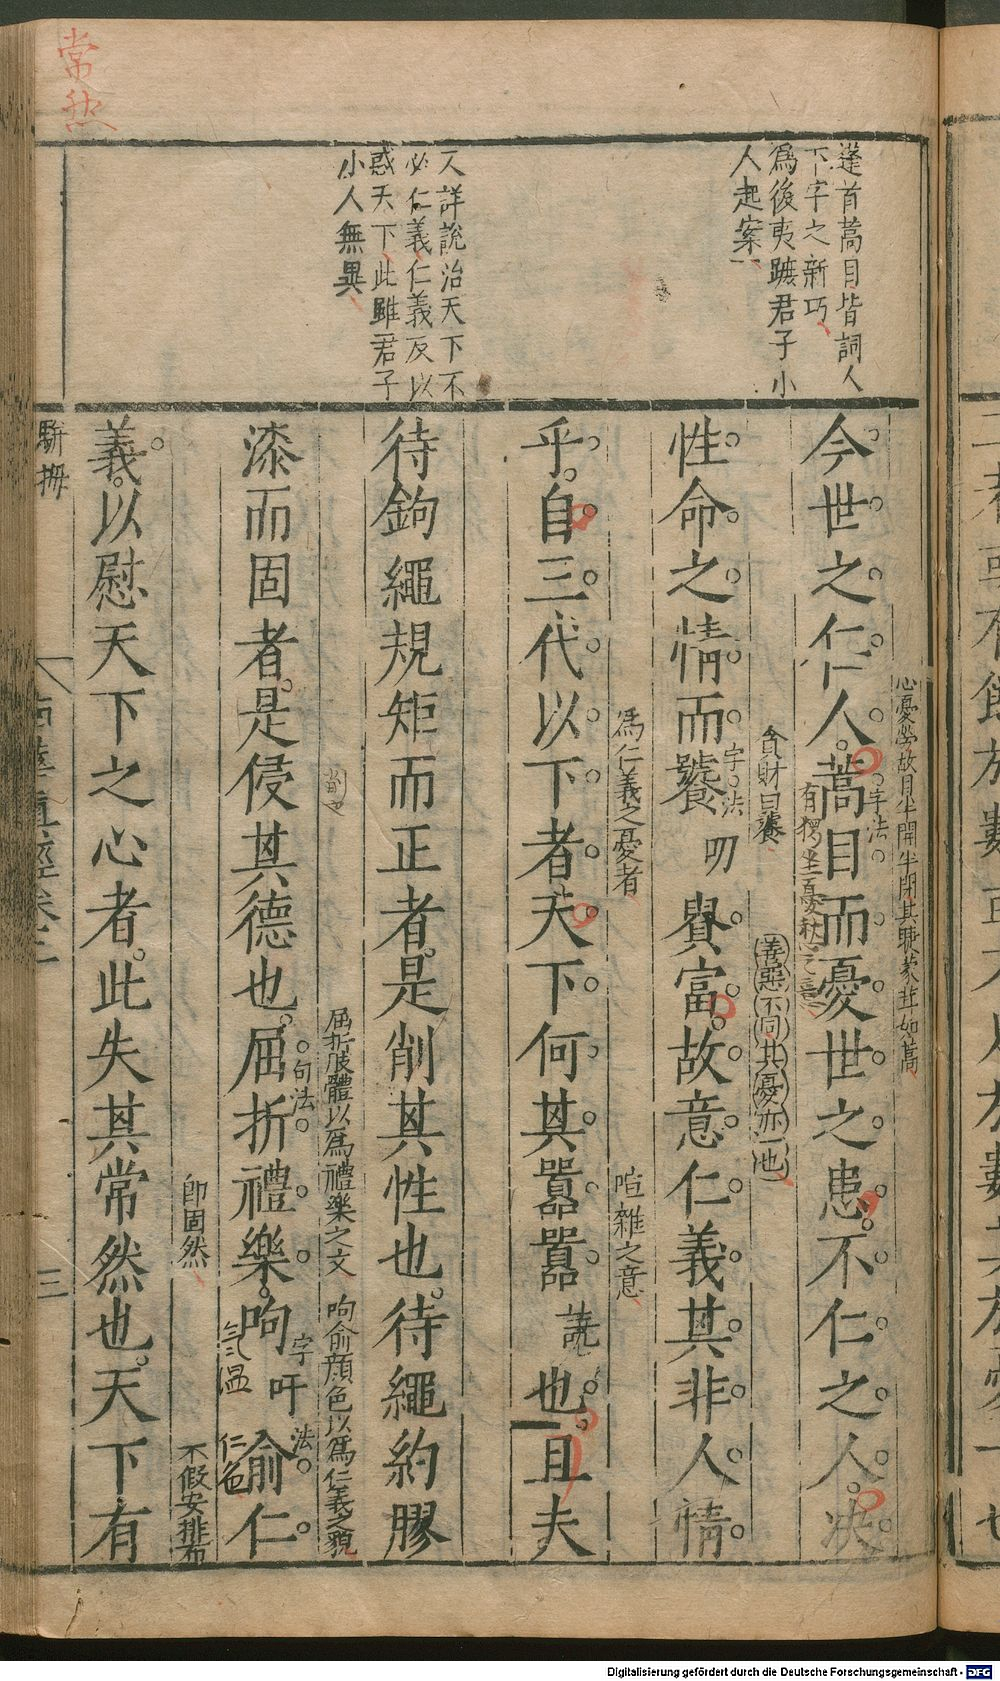 常然
蓬首蒿目皆詞人
下字之新巧
為後夷蹠君子小
人起案
又詳說治天下不
必仁義仁義反以
惑天下此雖君子
小人無異
心憂勞故目半開半閉其睫蒙茸如蒿
今世之仁人蒿目而憂世之患不仁之人決
字法
貪財曰饕
善惡不同其憂亦一也
性命之情而饕叨貴富故意仁義其非人情
字法
為仁義之憂者
喧雜之意
乎自三代以下者天下何其囂囂譊也且夫
待鉤繩規矩而正者是削其性也待繩約膠
屈折肢體以為禮樂之文
呴俞顏色以為仁義之貌
漆而固者是侵其德也屈折禮樂呴吁俞仁
句法
字法
氣溫
仁色
即固然
不假安排布
義以慰天下之心者此失其常然也天下有
駢拇
三
Digitalisierung gefördert durch die Deutsche Forschungsgemeinschaft - DFG